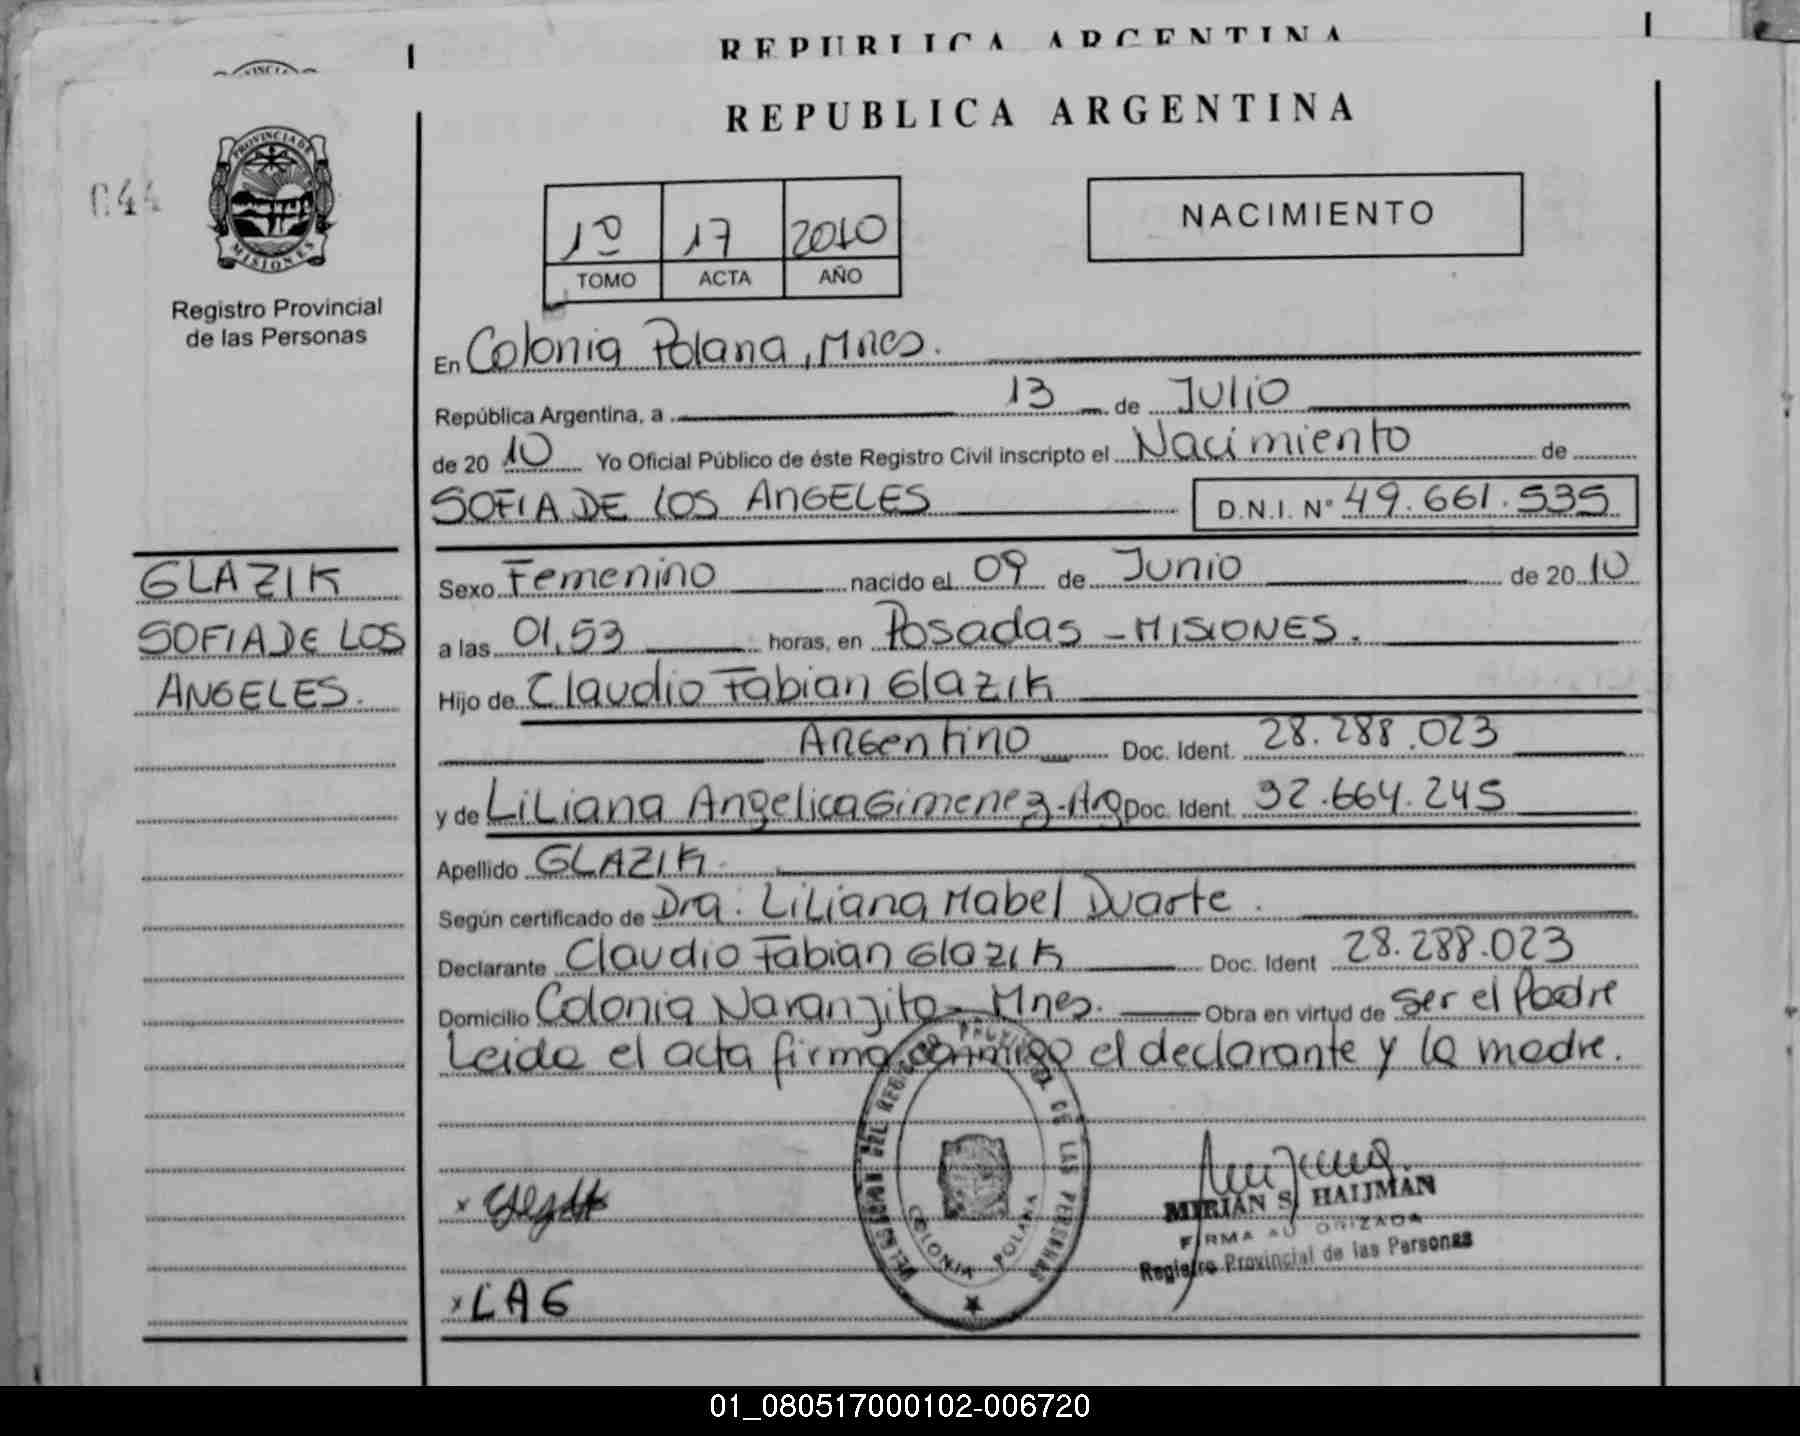 REPUBLICA ARGENTINA
REPUBLICA ARGENTINA
044
PROVINCIA DE MISIONES
Registro Provincial
de las Personas
1º 17 2010
TOMO ACTA AÑO
NACIMIENTO
En Colonia Polana, Mnes.
República Argentina, a 13 de Julio
de 2010 Yo Oficial Público de éste Registro Civil inscripto el Nacimiento de
SOFIA DE LOS ANGELES D.N.I. Nº 49.661.535
GLAZIK
SOFIA DE LOS
ANGELES.
Sexo Femenino nacido el 09 de Junio de 2010
a las 01,53 horas, en Posadas - MISIONES.
Hijo de Claudio Fabian Glazik
Argentino Doc. Ident. 28.288.023
y de Liliana Angelica Gimenez - Arg Doc. Ident. 32.664.245
Apellido GLAZIK
Según certificado de Dra. Liliana Mabel Duarte.
Declarante Claudio Fabian Glazik Doc. Ident 28.288.023
Domicilio Colonia Naranjito - Mnes. Obra en virtud de ser el Padre
Leida el acta firma conmigo el declarante y la madre.
DEL REGISTRO PROVINCIAL DE LAS PERSONAS
COLONIA POLANA
MIRIAN S. HAIJMAN
FIRMA AUTORIZADA
Registro Provincial de las Personas
x
x LAG
01_080517000102-006720